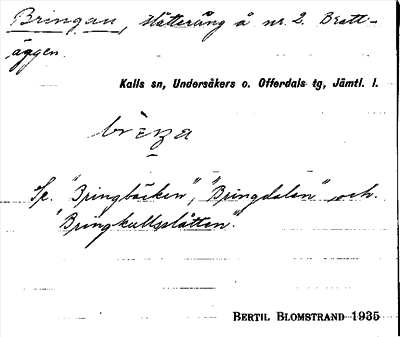 Bringan, slåtteräng å nr. 2. Bratt-
äggen.
Kalls sn, Undersåkers o. Offerdals tg, Jämtl. l.
Se. "Bringbäcken", "Bringdalen" och.
"Bringkullsslåtten".
BERTIL BLOMSTRAND 1935